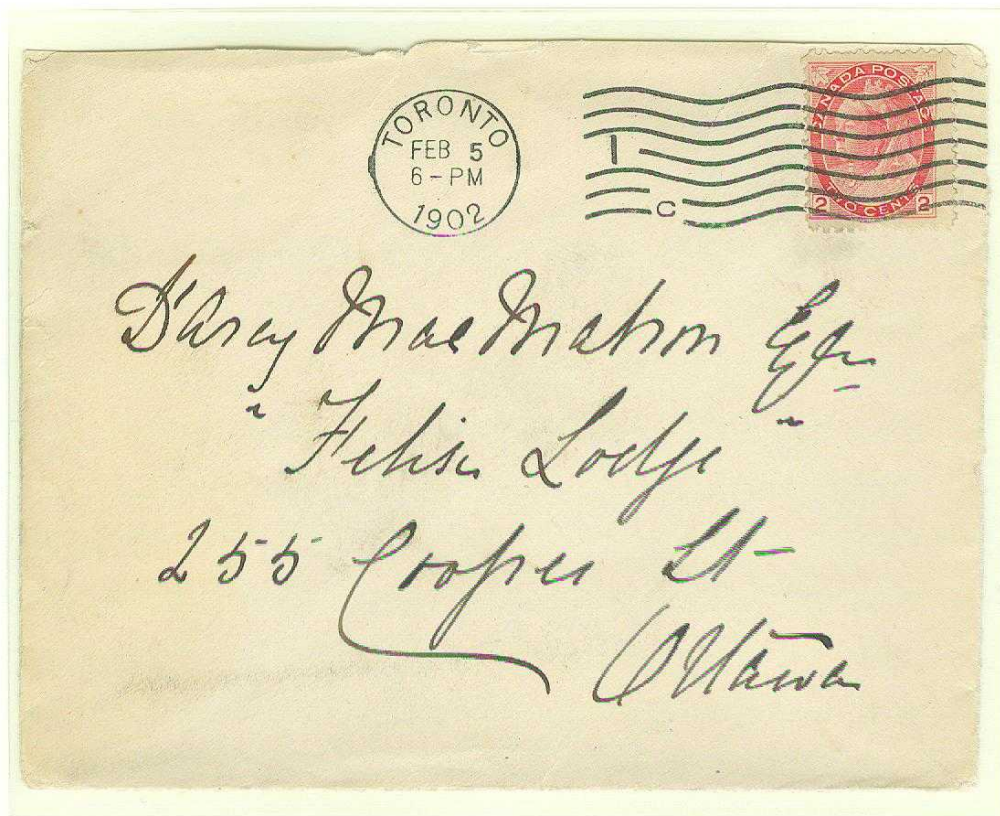 TORONTO
FEB 5
6-PM
1902
I
C
CANADA POSTAGE
2 TWO CENTS 2
D'Arcy MacMahon Esq
" Felise Lodge "
255 Cooper St
Ottawa